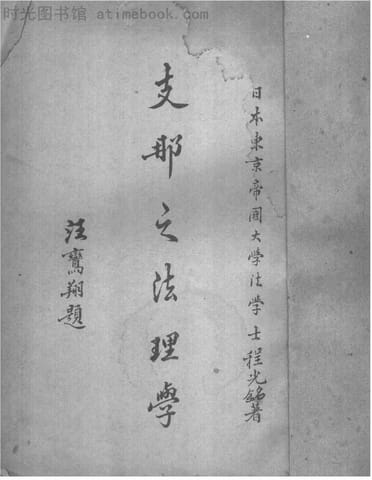 时光图书馆 - atimebook.com
日本東京帝國大学法学士程光銘著
支那之法理學
汪鸞翔題